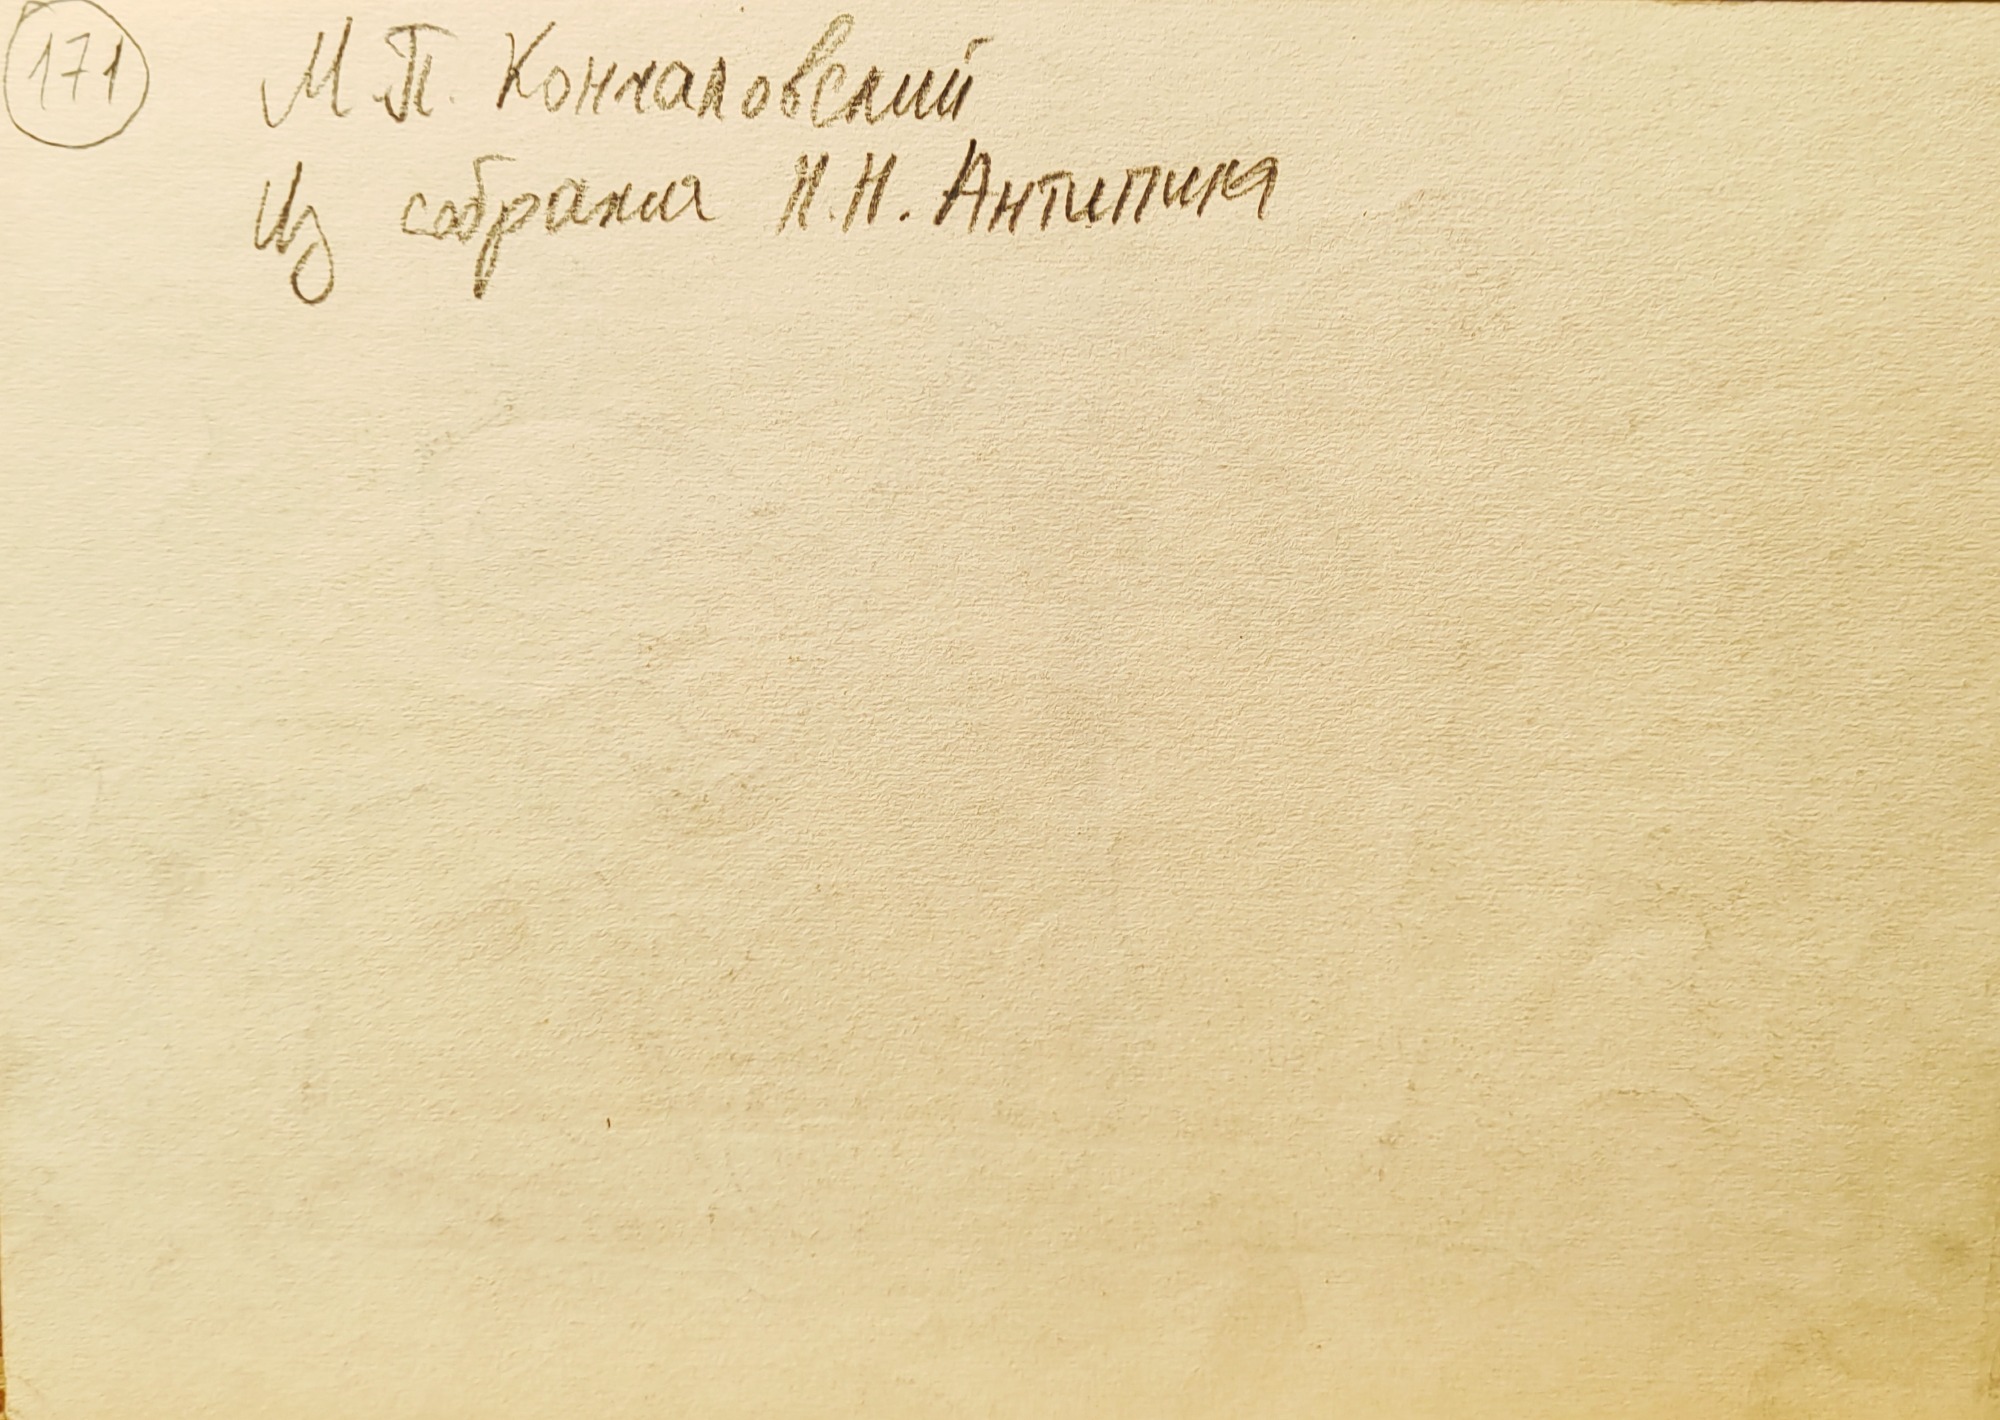 171 М.П. Кончаловский
Из собрания Н.Н. Антипина